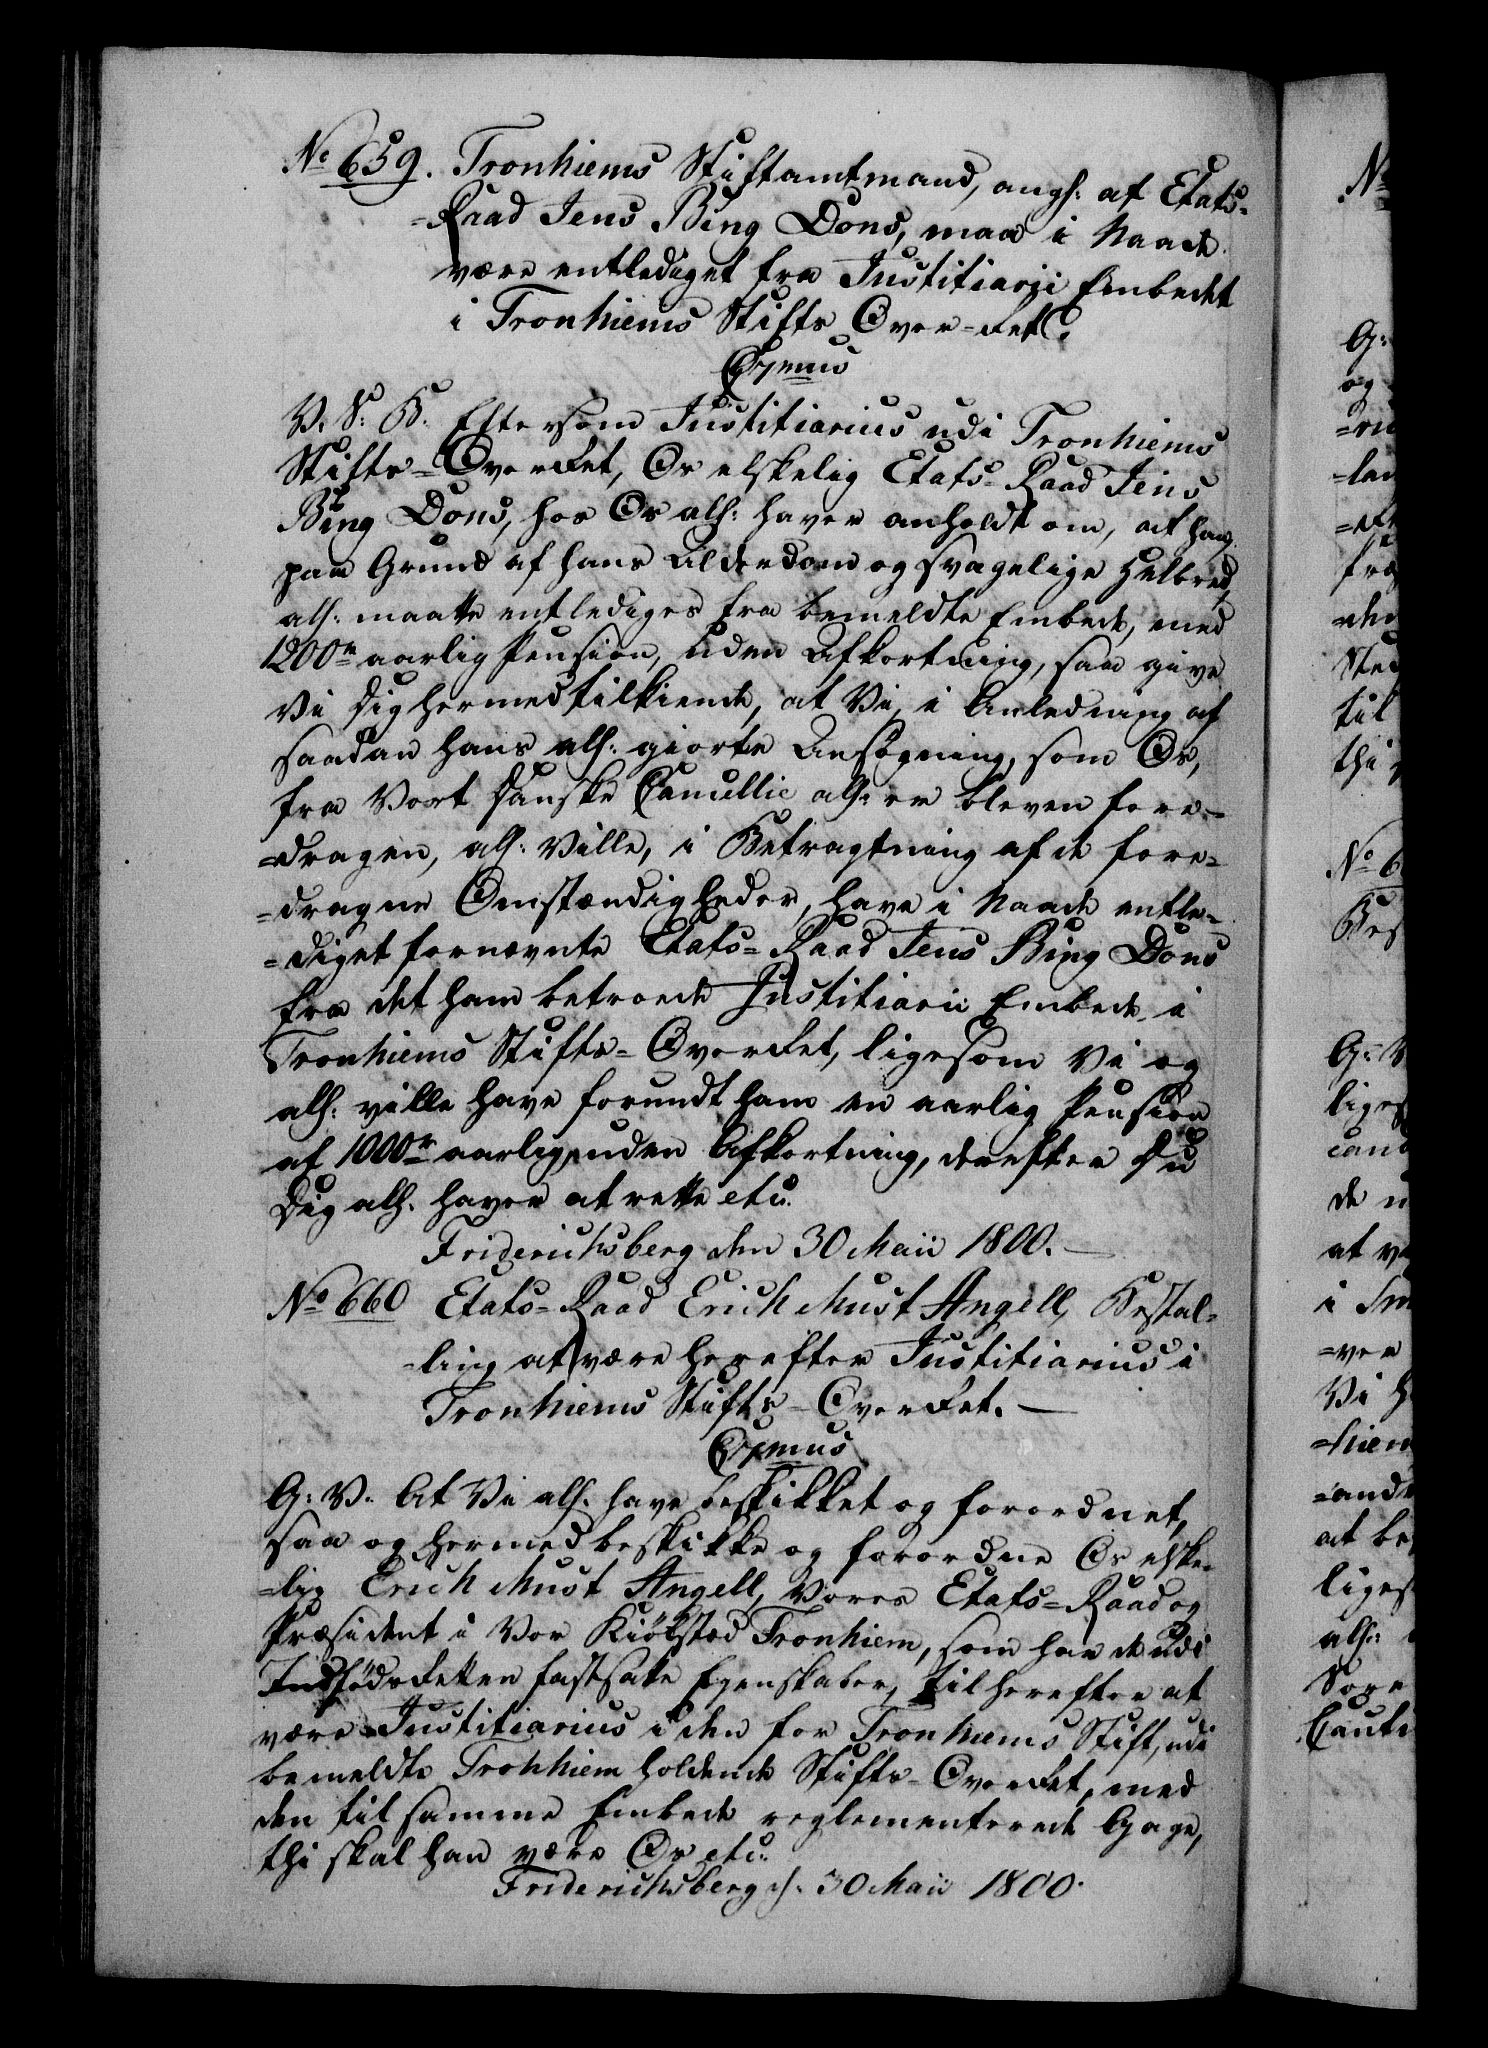 No 659. Tronhiems Stiftamtmand, angl: at Etats-
=Raad Jens Bing Dons, maa i Naade
være entlediget fra Justitiarii Embedet
i Tronhiems Stifts Over-Ret.
C7mus
V. S: B. Eftersom Justitiarius udi Tronhiems
Stifts-OverRet, Os elskelig Etats-Raad Jens
Bing Dons, hos Os all: haver anholdt om, at han,
paa Grund af hans Alderdom og svagelige Helbred,
all: maatte entlediges fra bemeldte Embede, med
1200rd aarlig Pension, uden Afkortning, saa give
Vi Dig hermed tilkiende, at Vi, i Anledning af
saadan hans all: giorte Ansøgning, som Os,
fra Vort Danske Cancellie all: er bleven fore-
=dragen, all: Ville, i Betragtning af de fore-
=dragne Omstændigheder, have i Naade entle-
=diget fornævnte Etats=Raad Jens Bing Dons
fra det ham betroede Justitiarii Embede i
Tronhiems Stifts=OverRet, ligesom Vi og
all: ville have forundt ham en aarlig Pension
af 1000rd aarlig, uden Afkortning, derefter Du
Dig all: haver at rette etc.
Friderichsberg den 30 Maii 1800.
No 660 Etats=Raad Erich Must Angell, Bestal=
=ling at være herefter Justitiarius i
Tronhiems Stifts-OverRet.
C7mus
G: V: At Vi all: have beskikket og forordnet,
saa og hermed beskikke og forordne Os elske-
=lig Erich Must Angell, Vores Etats=Raad og
Præsident i Vor Kiøbsted Tronhiem, som har de udi
IndfødsRetten fastsatte Egenskaber, til herefter at
være Justitiarius i den for Tronhiems Stift, udi
bemeldte Tronhiem holdende Stifts-OverRet, med
den til samme Embede reglementerede Gage,
thi skal han være Os etc.
Friderichsberg d: 30 Maii 1800.